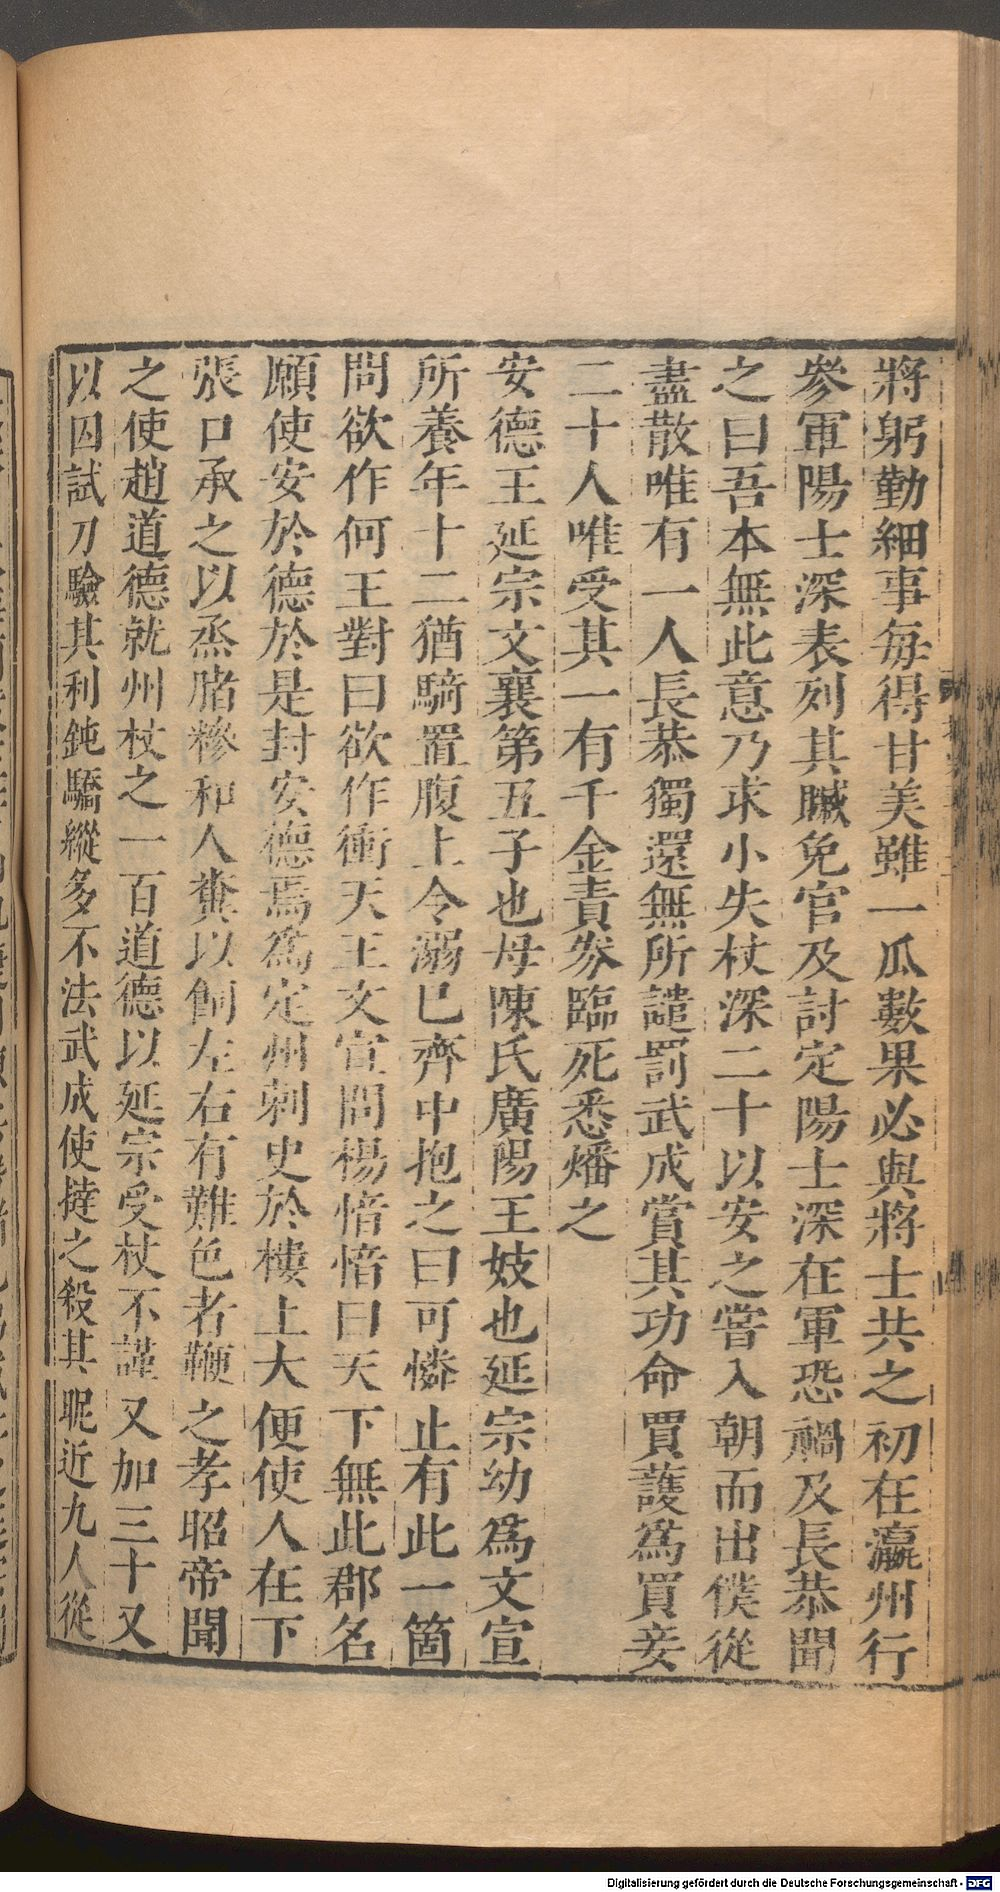 將躬勤細事每得甘美雖一瓜數果必與將士共之初在瀛州行
叅軍陽士深表列其贓免官及討定陽士深在軍恐禍及長恭聞
之曰吾本無此意乃求小失杖深二十以安之嘗入朝而出僕從
盡散唯有一人長恭獨還無所譴罰武成賞其功命買護爲買妾
二十人唯受其一有千金責券臨死悉燔之
安德王延宗文襄第五子也母陳氏廣陽王妓也延宗幼爲文宣
所養年十二猶騎置腹上令溺巳齊中抱之曰可憐止有此一箇
問欲作何王對曰欲作衝天王文宣問楊愔愔曰天下無此郡名
願使安於德於是封安德焉爲定州刺史於樓上大便使人在下
張口承之以烝腤糝和人糞以飼左右有難色者鞭之孝昭帝聞
之使趙道德就州杖之一百道德以延宗受杖不謹又加三十又
以囚試刀驗其利鈍驕縱多不法武成使撻之殺其昵近九人從
Digitalisierung gefördert durch die Deutsche Forschungsgemeinschaft - DFG